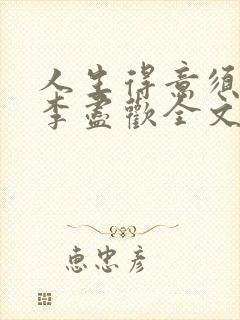 人生得意须
李盡歡全文
惠忠彦